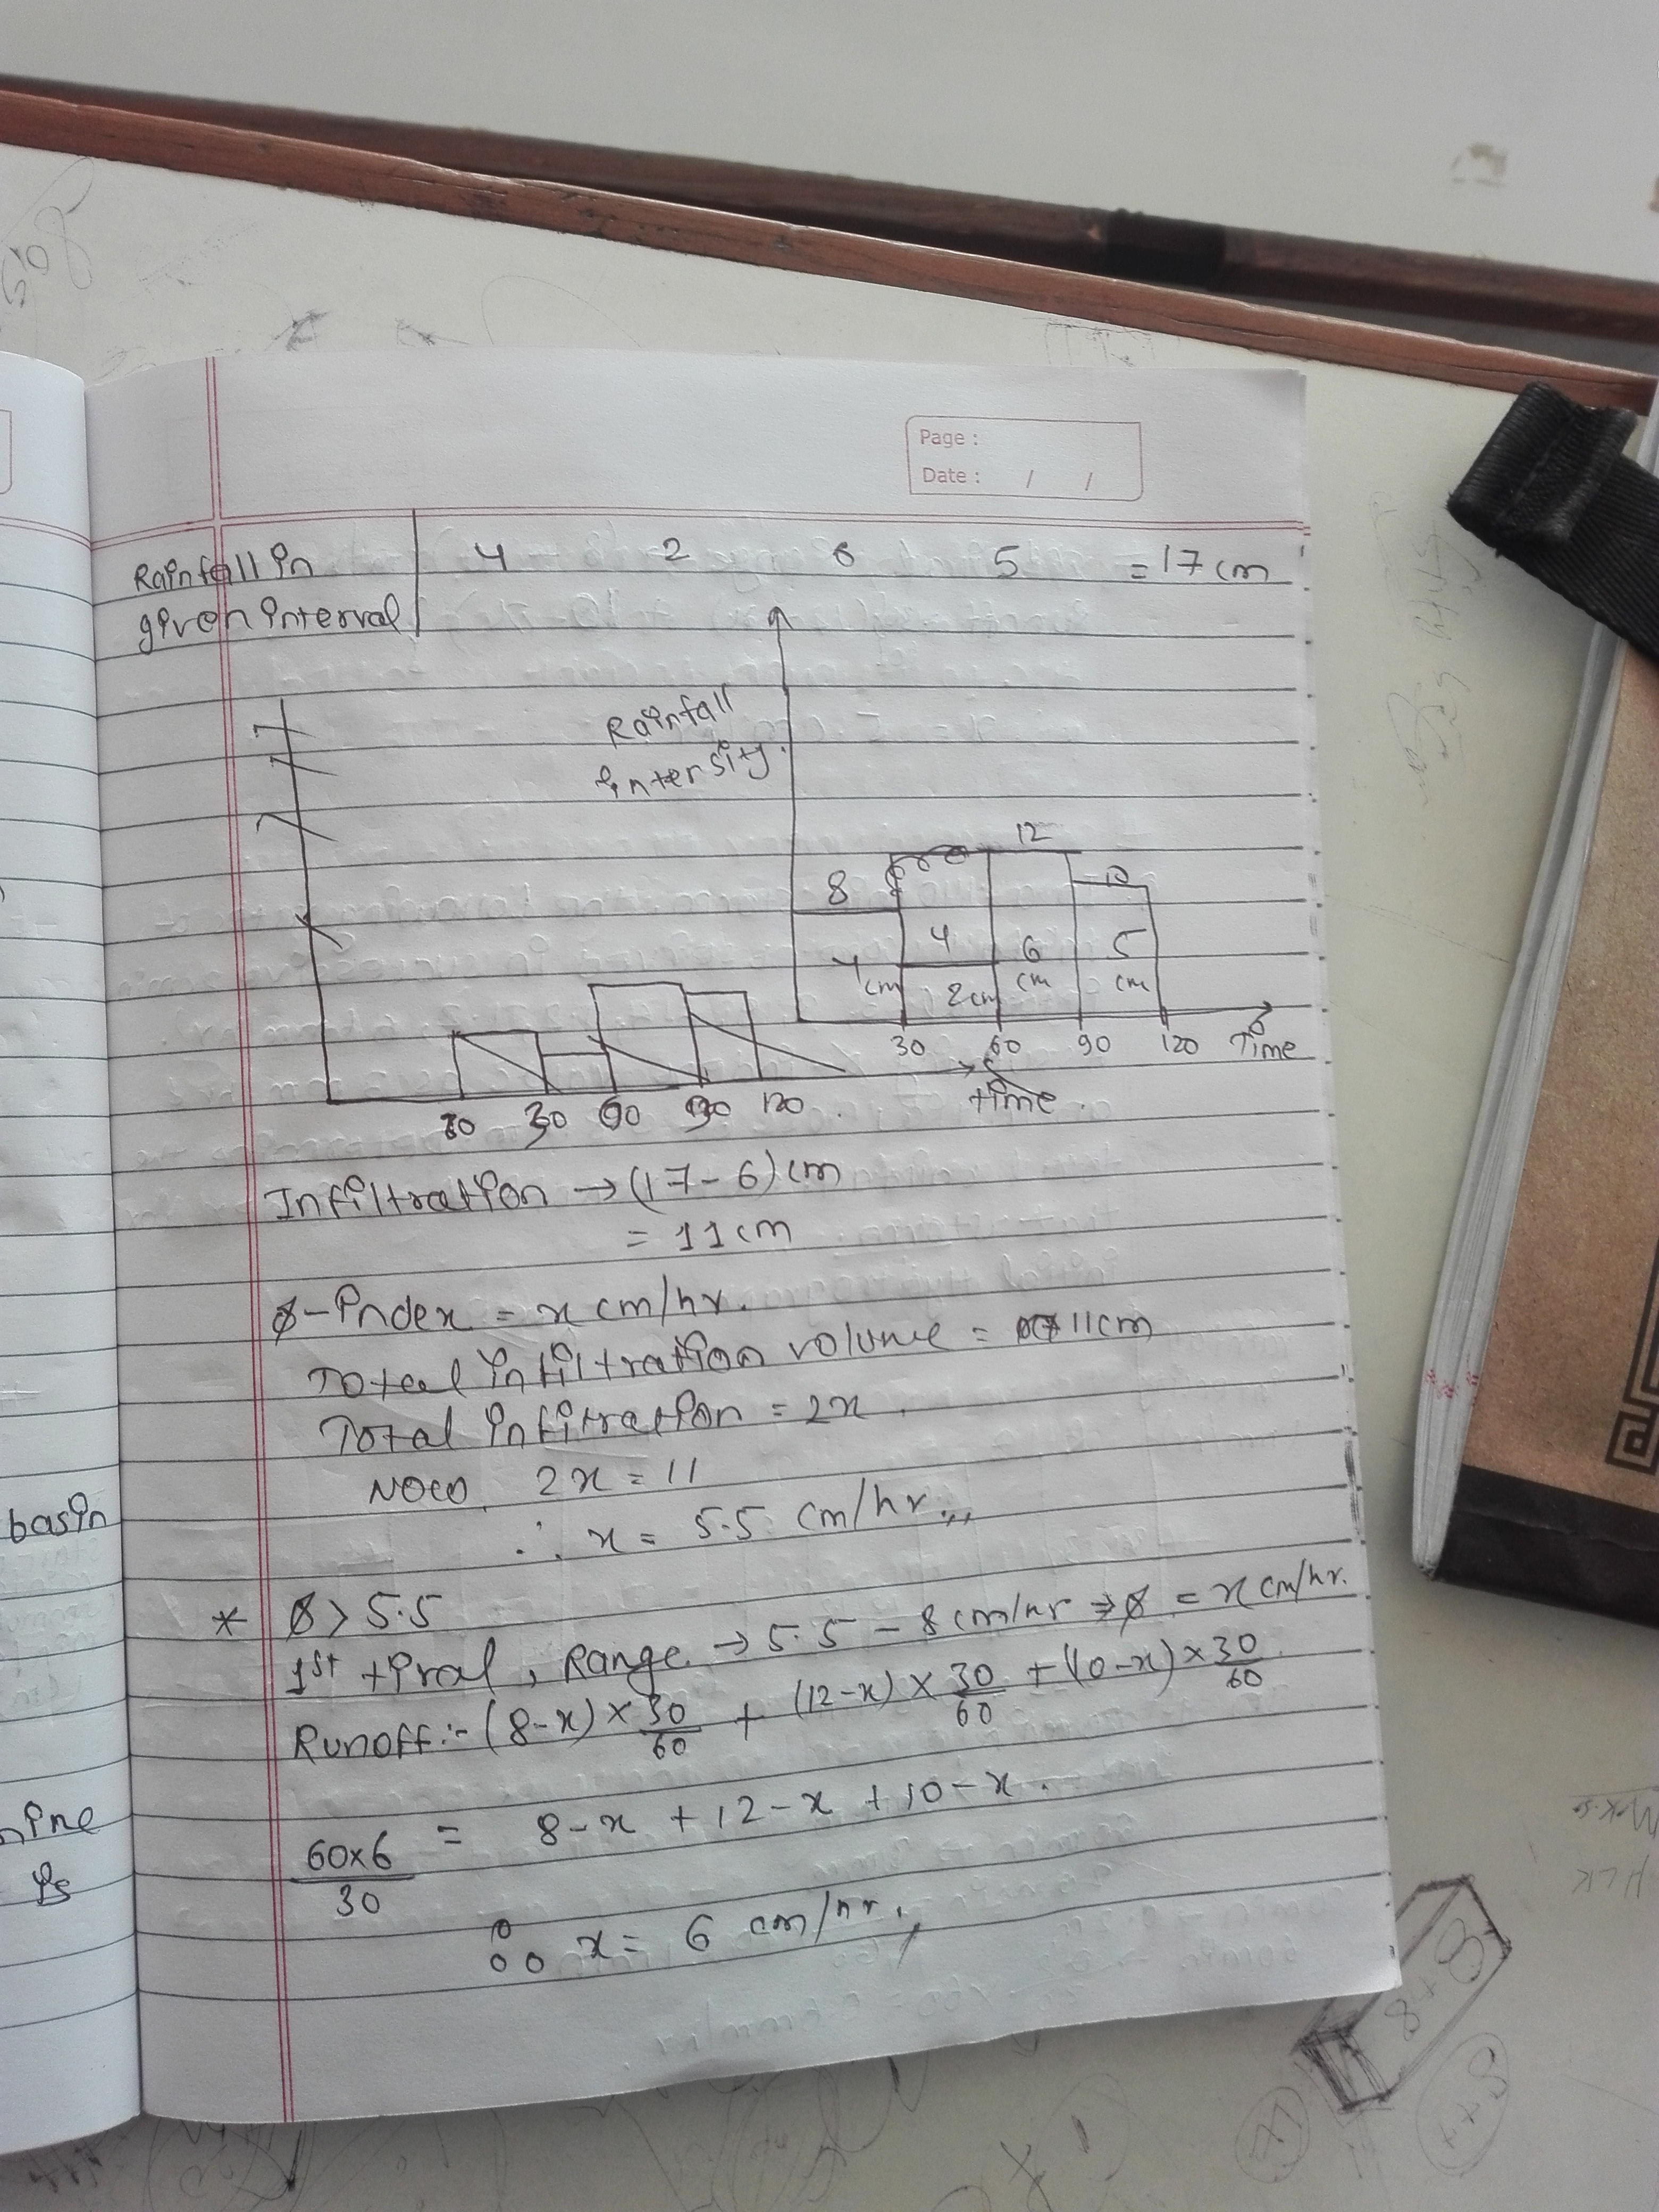 Page :
Date : / /
Rainfall in | 4 2 6 5 = 17 cm
given interval
Rainfall
intersity.
12
8
10
4 6 5
4 cm 2cm cm cm
30 60 90 120 Time
30 60 90 120
time.
Infiltration → (17-6) cm
= 11 cm
ϕ-index = x cm/hr.
Total infiltration volume = 11cm
Total infitration = 2x.
Now, 2x = 11
∴ x = 5.5 cm/hr.,,
* ϕ > 5.5
1st tiral, Range → 5.5 - 8 cm/hr ⇒ ϕ = x cm/hr.
Runoff :- (8-x) × 30/60 + (12-x) × 30/60 + (10-x) × 30/60
60×6/30 = 8-x + 12-x + 10-x.
∴ x = 6 cm/hr.,
basin
ine
is
8+8